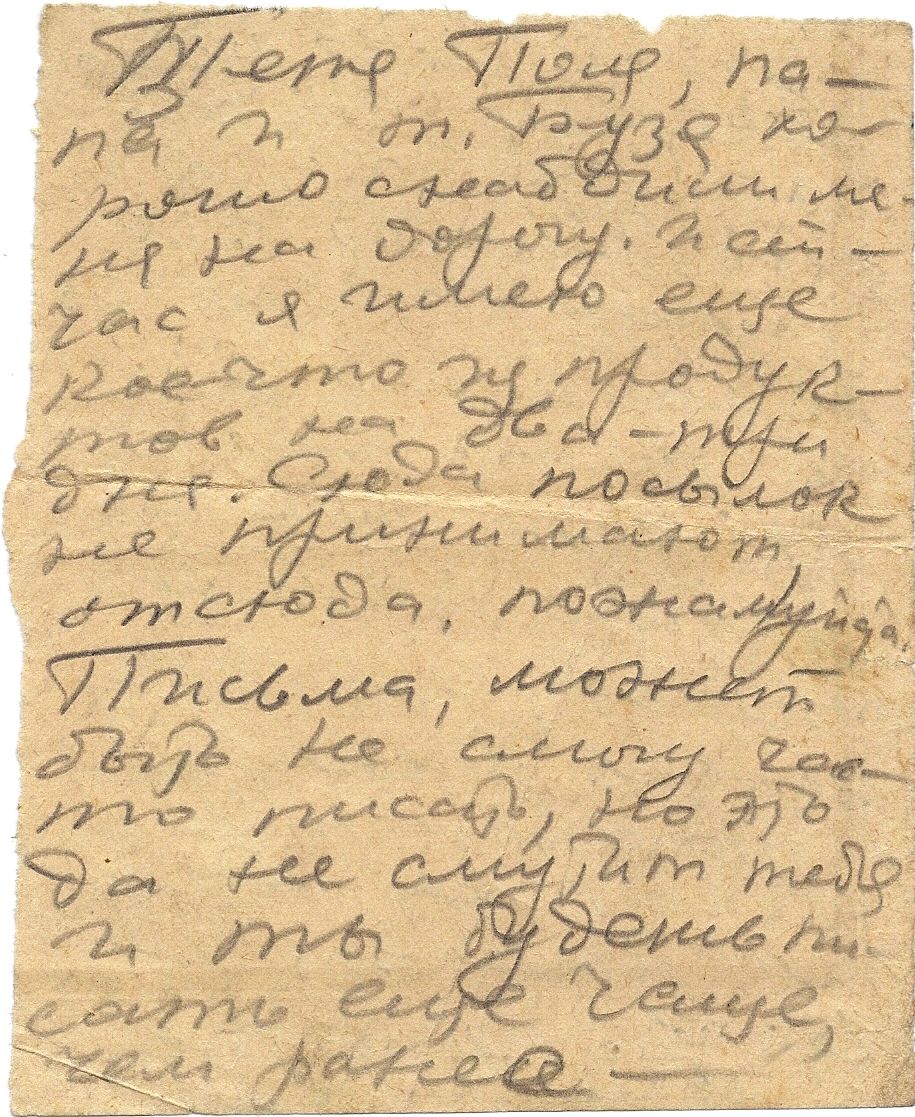 Тетя Поля, па-
па и т. Буза хо-
рошо снабдили ме-
ня на дорогу. И сей-
час я имею еще
кое-что из продук-
тов на два-три
дня. Сюда посылок
не принимают,
отсюда, пожалуйста.
Письма, может
быть не смогу час-
то писать, но это
да не смутит тебя
и ты будешь пи-
сать еще чаще,
чем ранее —